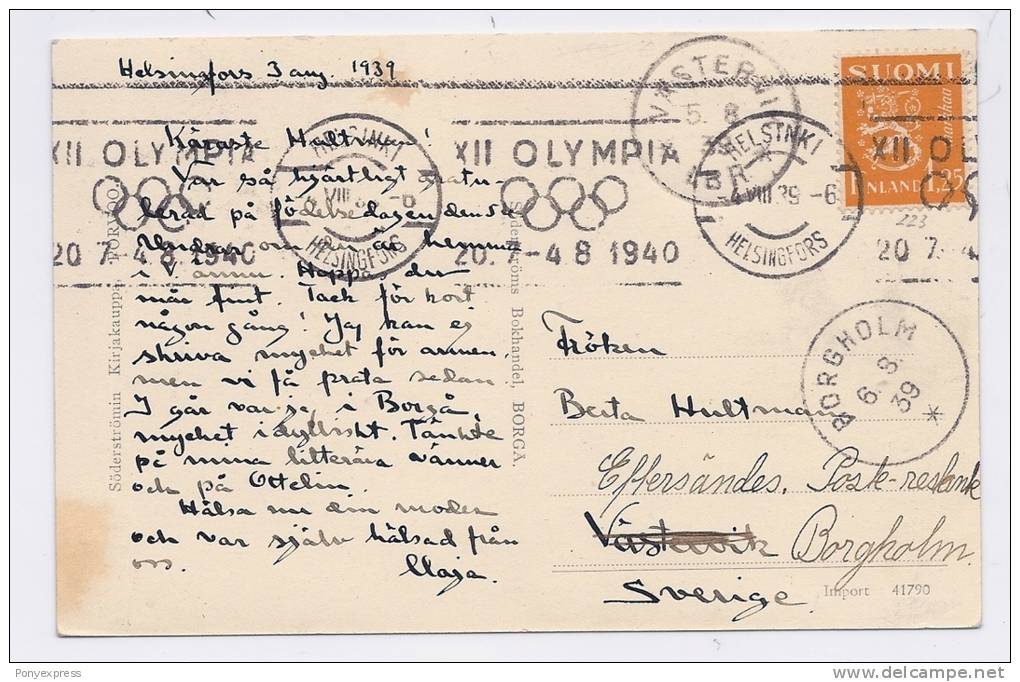 Helsingfors 3 aug. 1939
Käraste Hultman!
Var så hjärtligt gratu-
lerad på födelsedagen den 5te
Undrar om du är hemma
i V. ännu. Hoppas du
mår fint. Tack för kort
någon gång! Jag kan ej
skriva mycket för armen,
men vi få prata sedan.
I går var jag i Borgå,
mycket idylliskt. Tänkte
på mina litterära vänner
och på Ottelin.
Hälsa nu din moder
och var själv hälsad från
oss. Maja.
Söderströmin Kirjakauppa, PORVOO.
Söderströms Bokhandel, BORGÅ.
XII OLYMPIA
20 7 - 4 8 1940
HELSINKI
4 VIII 39 -6
HELSINGFORS
XII OLYMPIA
20. 7 - 4 8 1940
VÄSTERVIK
5. 8
LBR
HELSINKI
-4 VIII 39 -6
HELSINGFORS
SUOMI
markkaa
FINLAND 1,25
XII O
20 7 - 4
223
BORGHOLM
6. 8.
39
Fröken
Berta Hultman
Eftersändes. Poste-restante
Västervik Borgholm.
Sverige.
Import 41790
Ponyexpress
delcampe.net